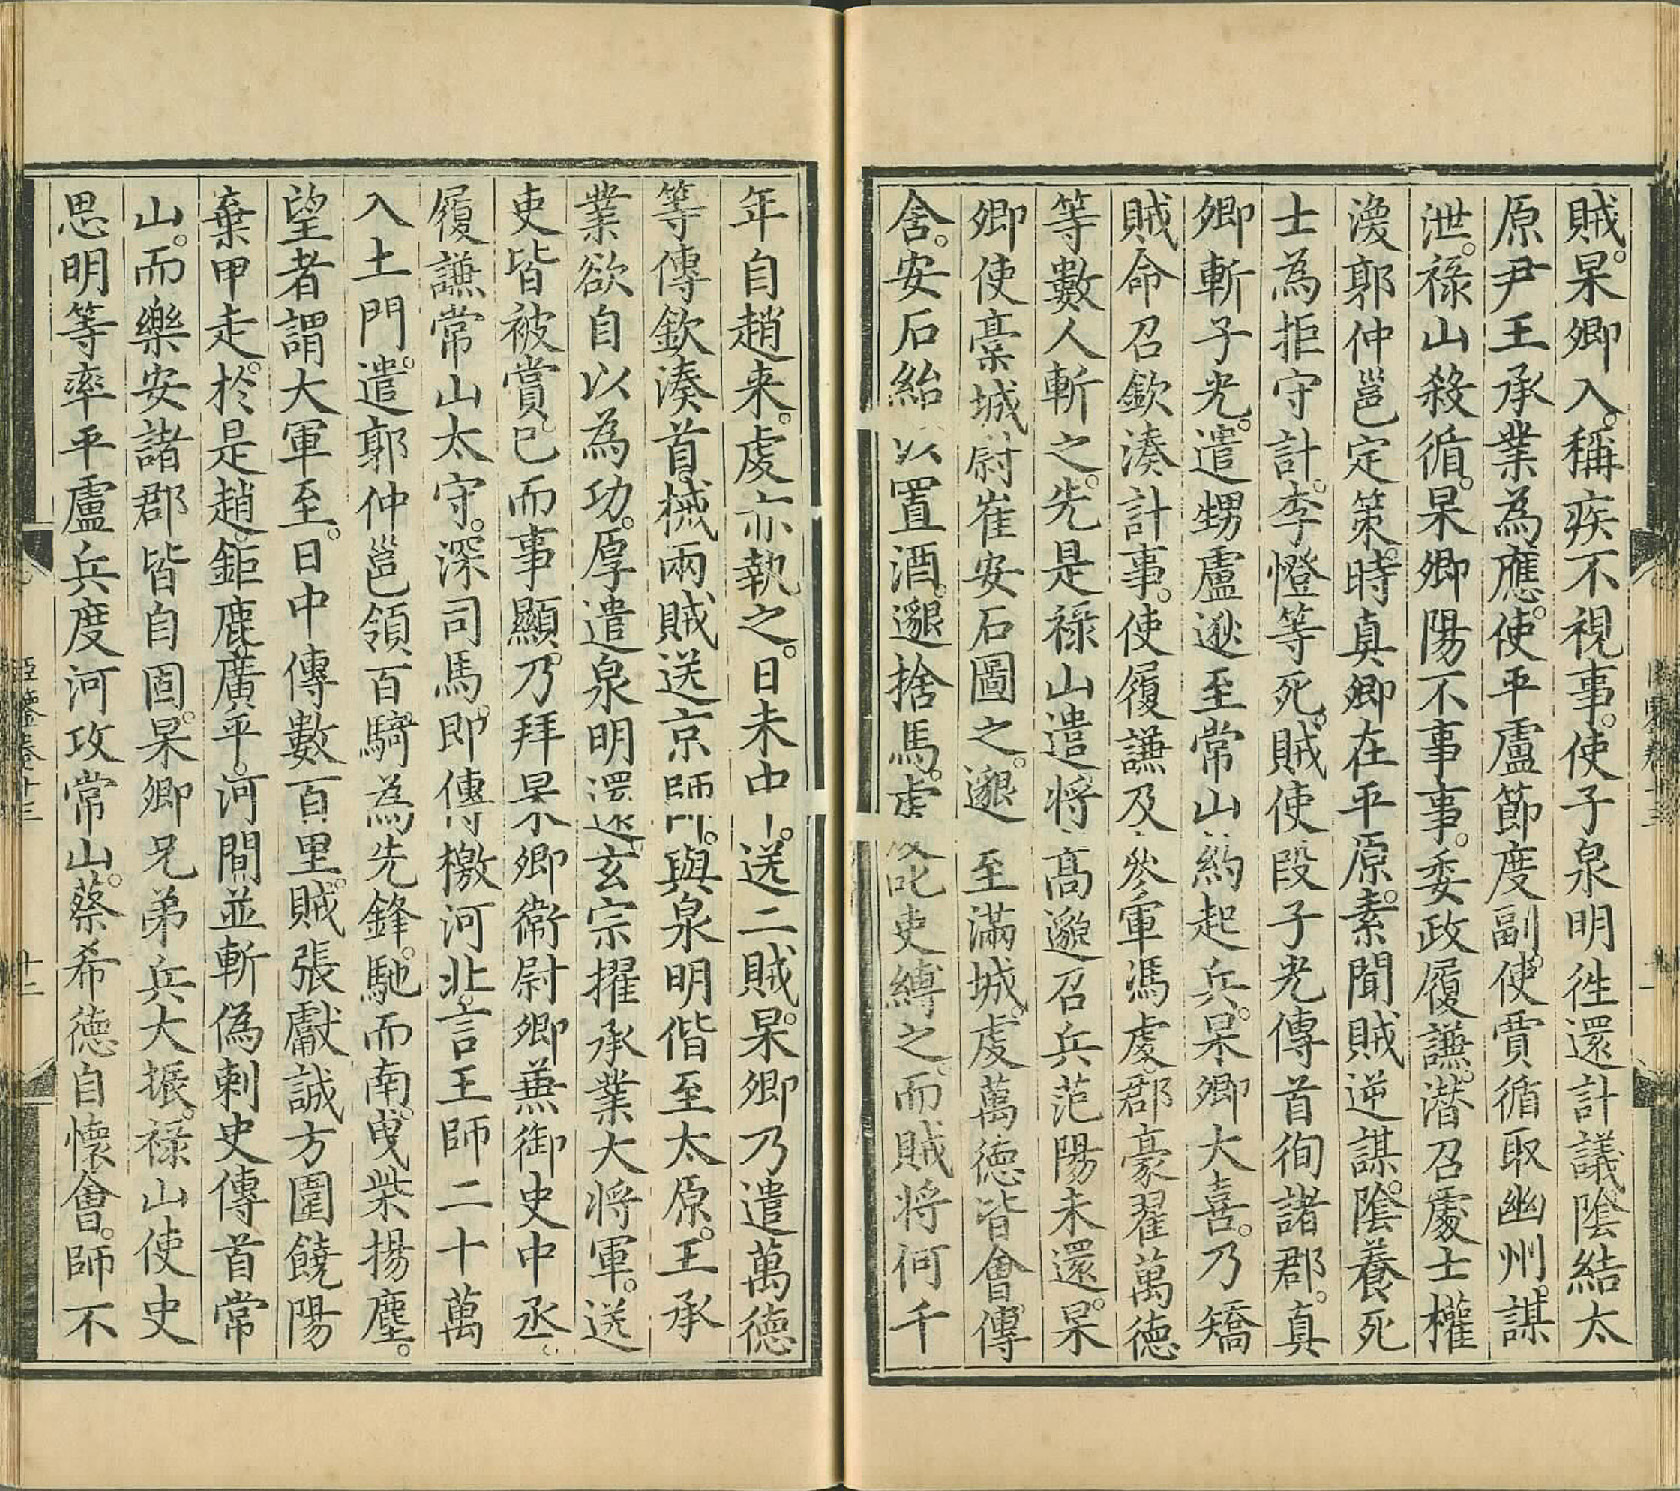 賊。杲卿入。稱疾不視事。使子泉明徃還計議。陰結太
原尹王承業為應。使平盧節度副使賈循取幽州。謀
泄。祿山殺循。杲卿陽不事事。委政履謙。潛召處士權
渙郭仲邕定策。時真卿在平原。素聞賊逆謀。陰養死
士為拒守計。李憕等死。賊使段子光傳首徇諸郡。真
卿斬子光。遣甥盧逖至常山約起兵。杲卿大喜。乃矯
賊命召欽湊計事。使履謙及參軍馮虔。郡豪翟萬德
等數人斬之。先是祿山遣將高邈召兵范陽未還。杲
卿使藁城尉崔安石圖之。邈至滿城。虔萬德皆會傳
舍。安石紿以置酒。邈捨馬。虔叱吏縛之。而賊將何千
年自趙来。虔亦執之。日未中送二賊。杲卿乃遣萬德
等傳欽湊首。械兩賊送京師。與泉明偕至太原。王承
業欲自以為功。厚遣泉明還。玄宗擢承業大將軍。送
吏皆被賞。已而事顯。乃拜杲卿衛尉卿兼御史中丞。
履謙常山太守。深司馬。即傳檄河北。言王師二十萬
入土門。遣郭仲邕領百騎為先鋒。馳而南。曳柴揚塵。
望者謂大軍至。日中傳數百里。賊張獻誠方圍饒陽
棄甲走。於是趙。鉅鹿。廣平。河間並斬偽刺史傳首常
山。而樂安諸郡皆自固。杲卿兄弟兵大振。祿山使史
思明等率平盧兵度河攻常山。蔡希德自懷會。師不